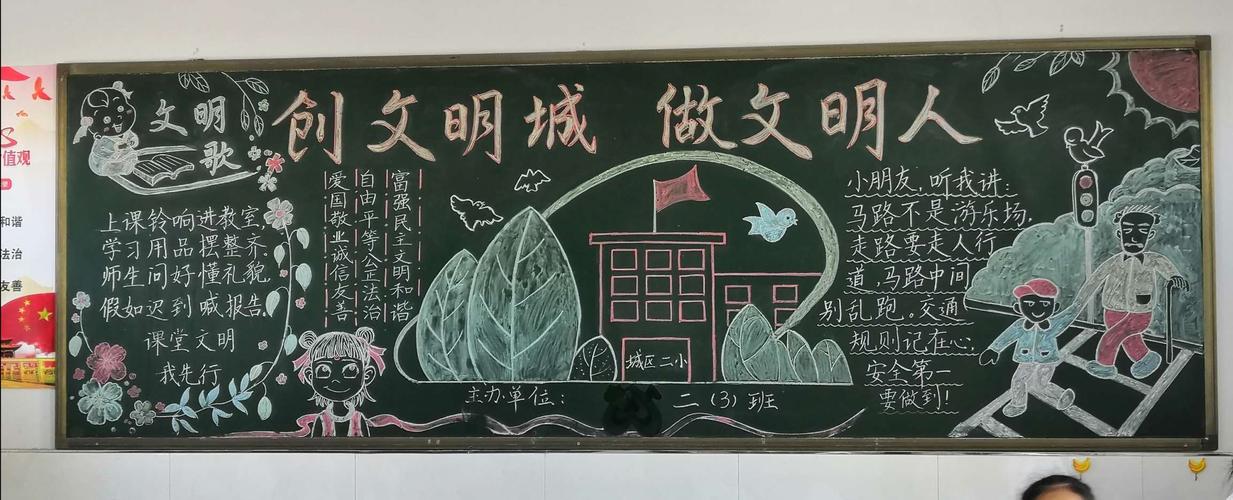 创文明城 做文明人
文明
歌
上课铃响进教室,
学习用品摆整齐。
师生问好懂礼貌,
假如迟到喊报告。
课堂文明
我先行
富强民主文明和谐
自由平等公正法治
爱国敬业诚信友善
城区二小
主办单位：
二（3）班
小朋友,听我讲:
马路不是游乐场,
走路要走人行
道,马路中间
别乱跑。交通
规则记在心,
安全第一
要做到!
值观
和谐
法治
友善